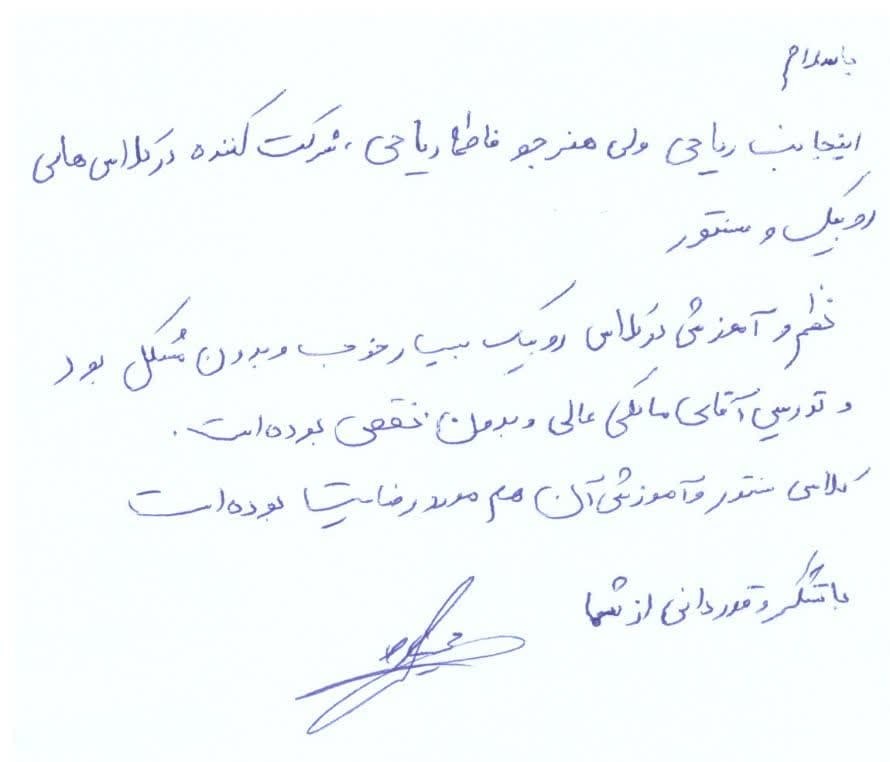 باسلام
اینجانب ریاحی ولی هنرجو فاطما ریاحی ، شرکت کننده در کلاس هایی
روبیک و سنتور
نظم و آموزشی در کلاس روبیک بسیار خوب و بدون مُشکل بود
و تدریس آقای مالکی عالی و بدون نقصی بوده است .
کلاس سنتور و آموزشی آن هم مورد رضایت ما بوده است
با تشکر و قدردانی از شما